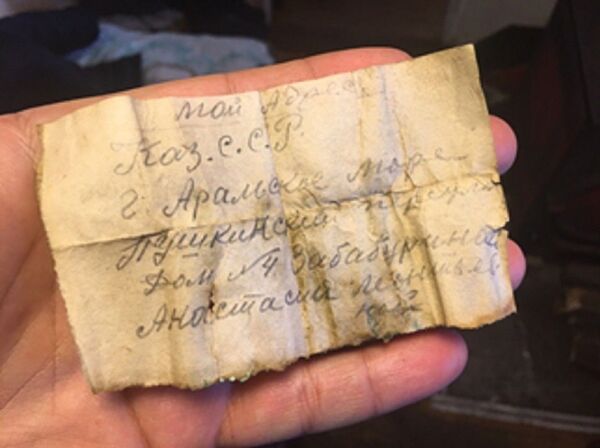 мой Адрес
Каз.С.С.Р.
г Аральское море
Пушкинский
Дом №4 Забабурина
Анастасия Леонтьев